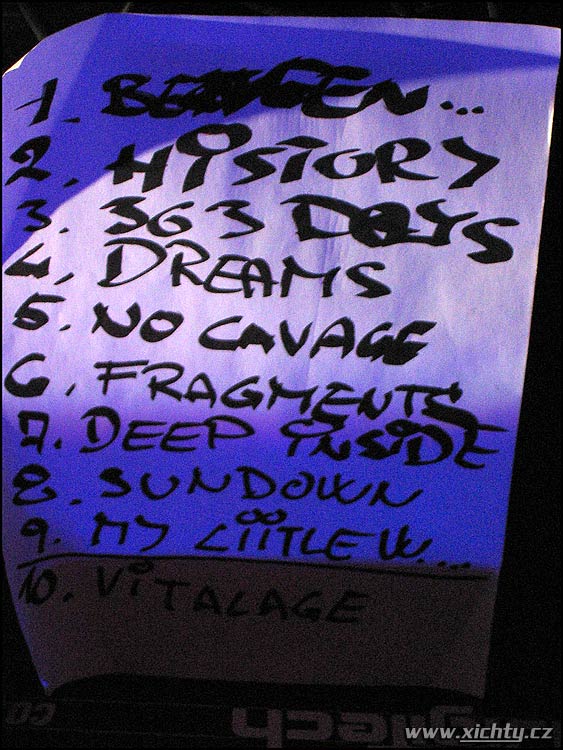 1. 
2. HiSTORY
3. 363 DAYS
4. DREAMS
5. NO CAVAGE
6. FRAGMENTS
7. DEEP iNSiDE
8. SUNDOWN
9. MY LiiTLE W...
10. ViTALAGE
www.xichty.cz